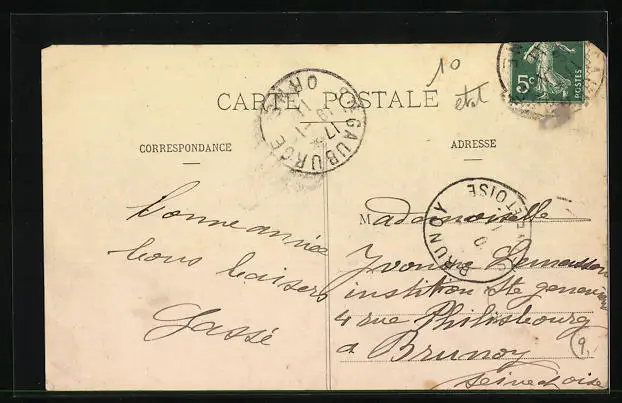 10
état
5c
POSTES
CARTE POSTALE
GAUBURGE
ORNE
CORRESPONDANCE
ADRESSE
BRUNOY
ET OISE
bonne année
bons baisers
Gassé
Mademoiselle
Yvonne Lemasson
institution Ste genevieve
4 rue Philisbourg
a Brunoy
seine et oise
9